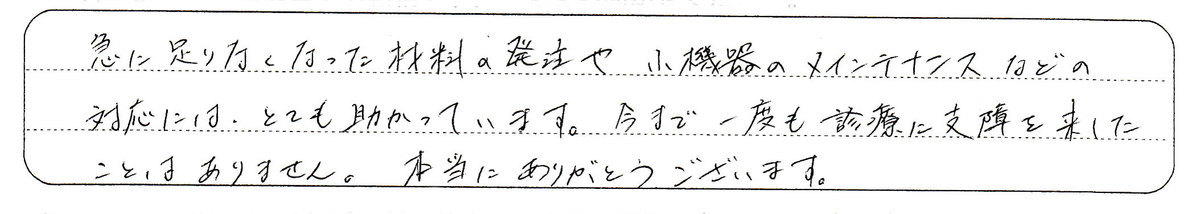 急に足りなくなった材料の発注や 小機器のメインテナンスなどの
対応には、とても助かっています。今まで一度も診療に支障を来した
ことはありません。 本当にありがとうございます。